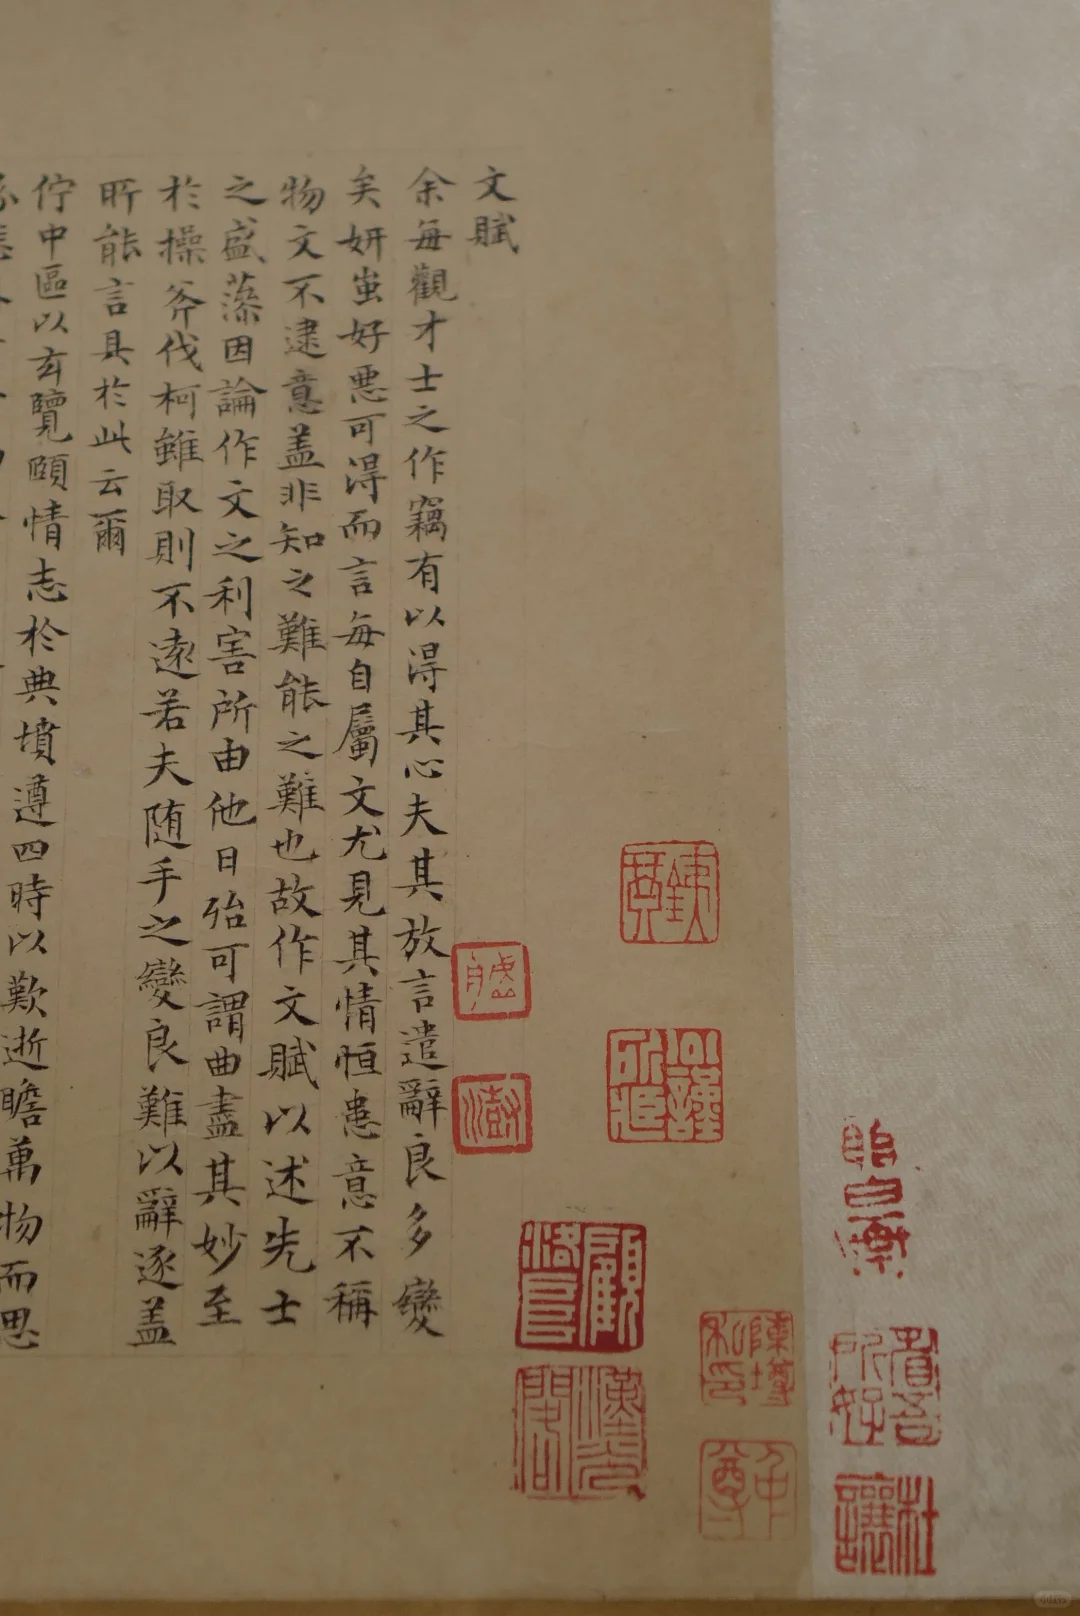 文賦
余每觀才士之作竊有以得其心夫其放言遣辭良多變
矣妍蚩好惡可得而言每自屬文尤見其情恒患意不稱
物文不逮意盖非知之難能之難也故作文賦以述先士
之盛藻因論作文之利害所由他日殆可謂曲盡其妙至
於操斧伐柯雖取則不遠若夫随手之變良難以辭逐盖
所能言具於此云爾
佇中區以玄覽頤情志於典墳遵四時以歎逝瞻萬物而思
顧洛阜
漢光閣
陳墫私印
仲尊
省吾所好
杜讓